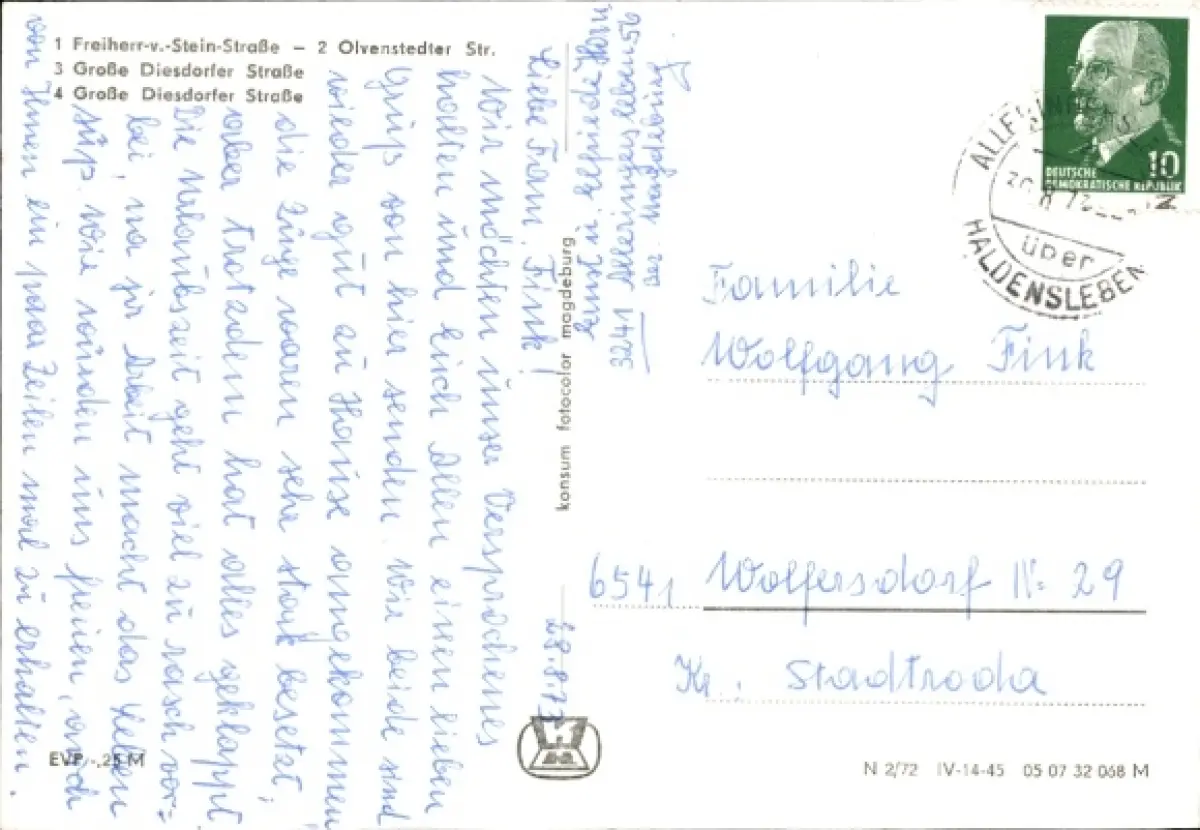 1 Freiherr-v.-Stein-Straße – 2 Olvenstedter Str.
3 Große Diesdorfer Straße
4 Große Diesdorfer Straße
28.8.73
Liebe Fam. Fink!
Wir möchten unser Versprochenes
halten und Euch Allen einen lieben
Gruß von hier senden. Wir beide sind
wieder gut zu Hause angekommen
die Züge waren sehr stark besetzt,
aber trotzdem hat alles geklappt
Die Urlaubszeit geht viel zu rasch vor=
bei, na ja Arbeit macht das Leben
süß. Wie würden uns freuen, auch
von Ihnen ein paar Zeilen mal zu erhalten.
3241 Alleringersleben 56
Bez. Magdeburg
konsum fotocolor magdeburg
DEUTSCHE
DEMOKRATISCHE REPUBLIK
10
über
HALDENSLEBEN
Familie
Wolfgang Fink
6541 Wolfersdorf Nr. 29
Kr. Stadtroda
EVP -,25 M
N 2/72 IV-14-45 05 07 32 068 M